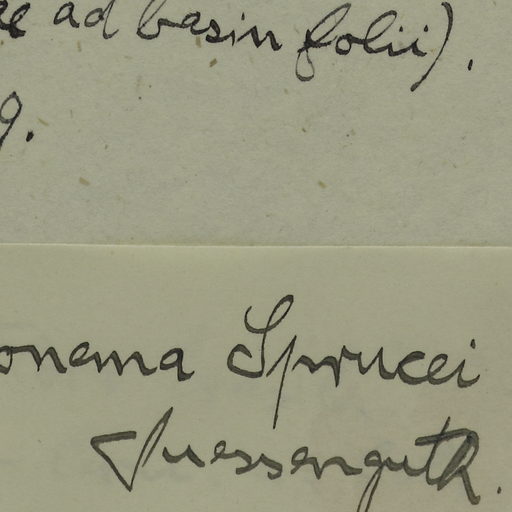 ae ad basin folii).
9.
onema Sprucei
Suessenguth.